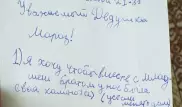 21-31
Уважаемый Дедушка
Мороз!
1) Я хочу чтобы вместе с млад-
шим братом у нас была
своя комната